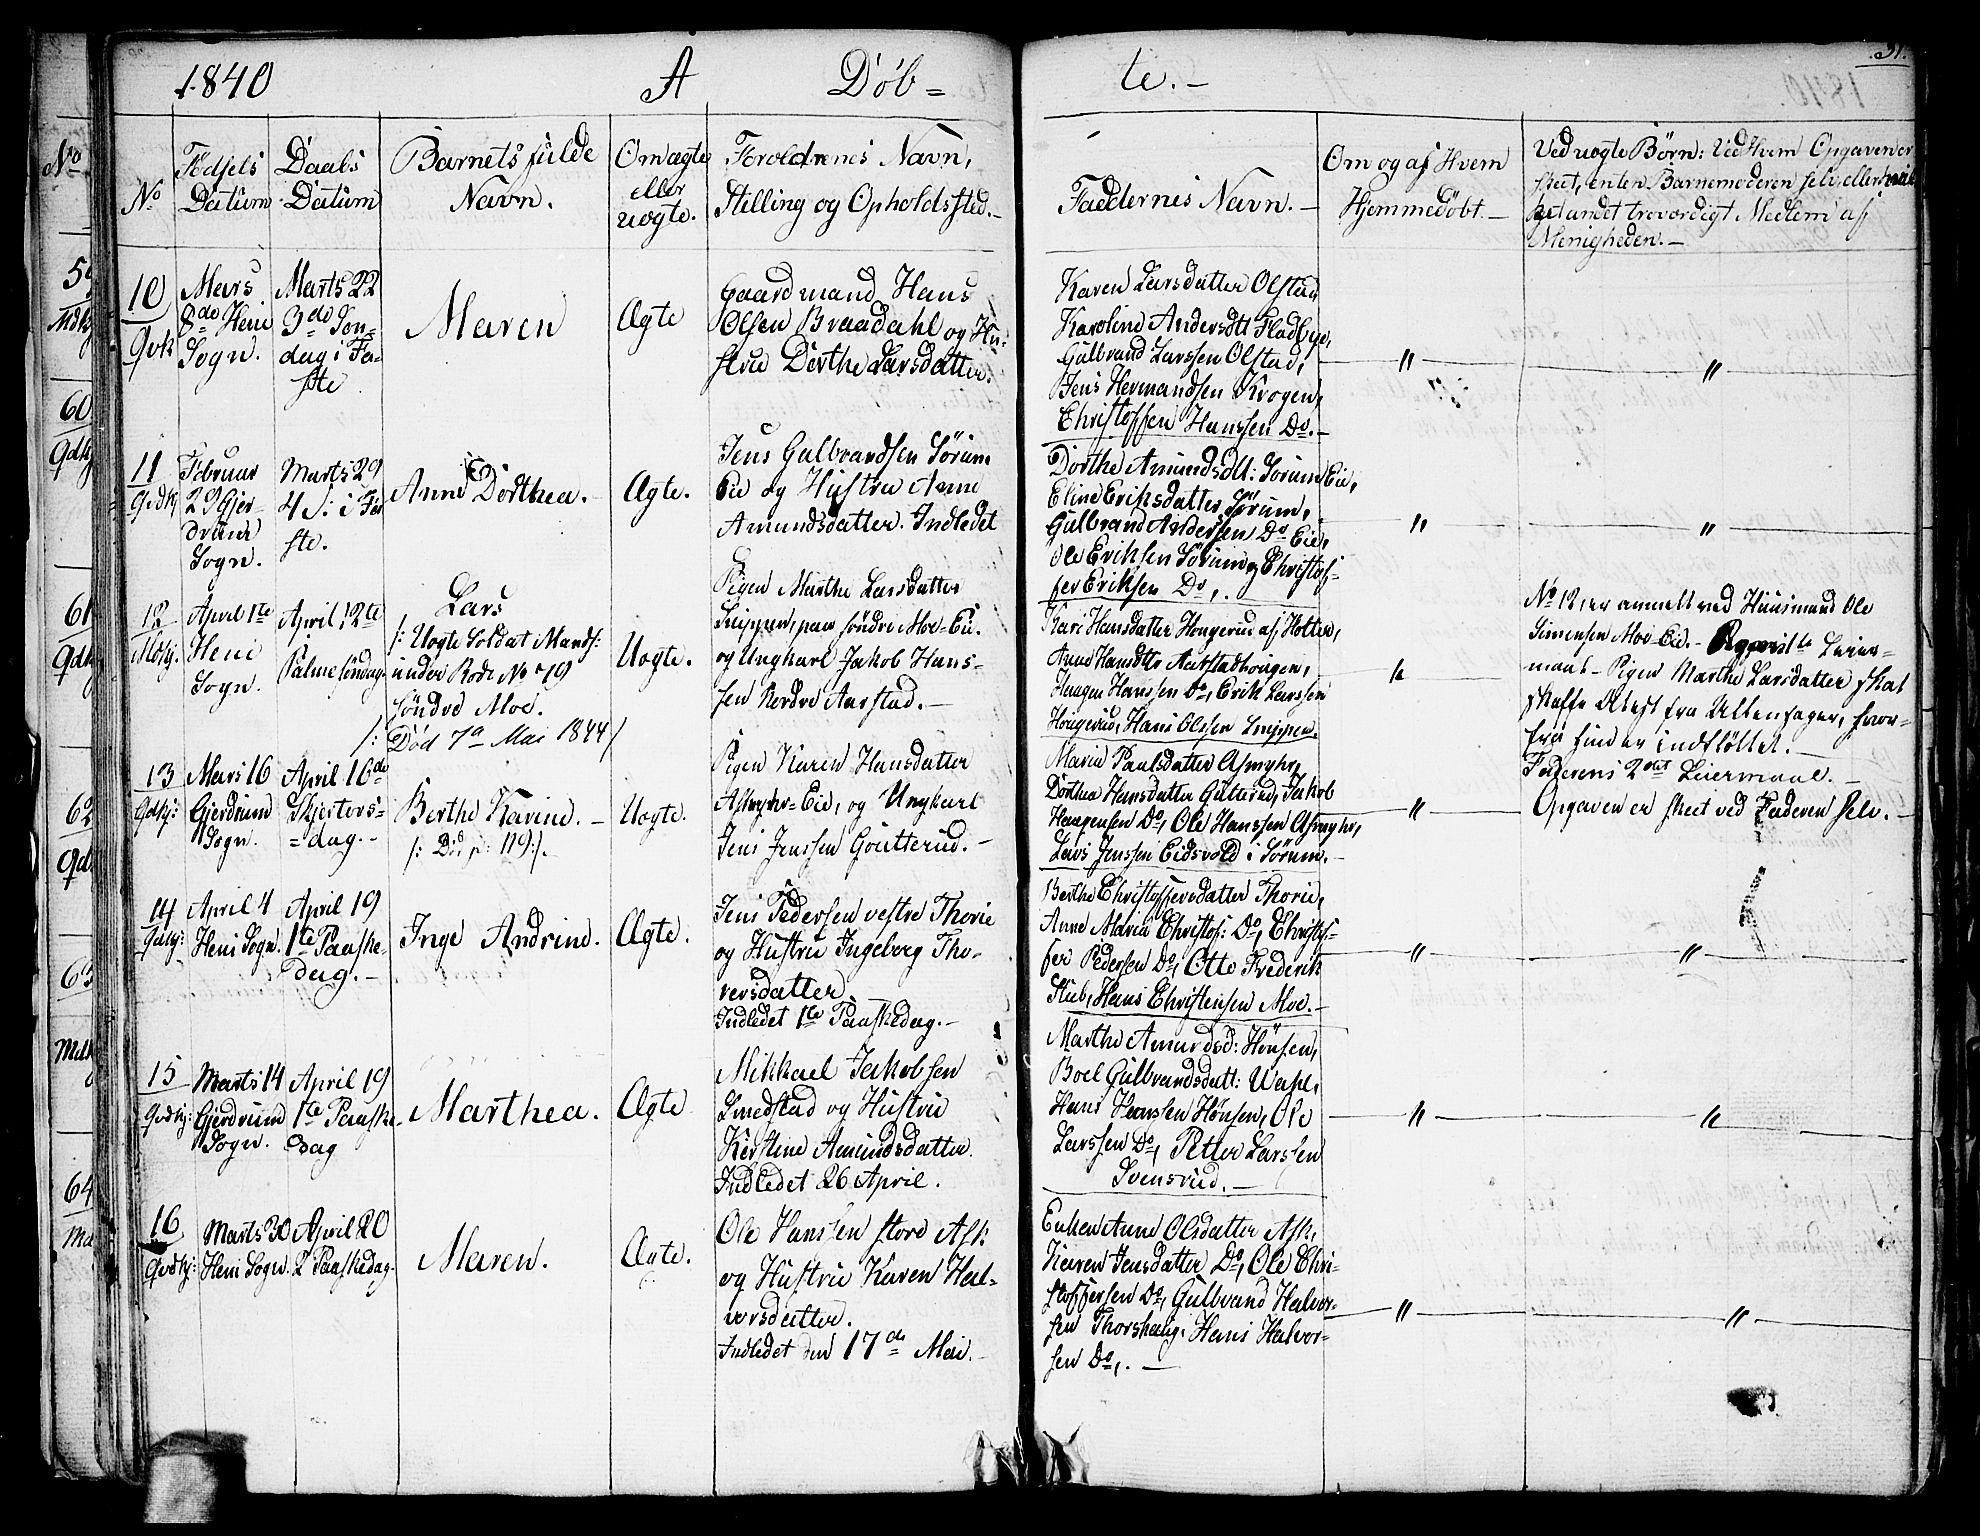 1840 A Döb= te.-
31.
No
Fødsels Datum
Daabs Datum
Barnets fulde Navn.
Om ægte eller uægte.
Forældrenes Navn, Stilling og Opholdssted.-
Faddernis Navn.-
Om og af Hvem Hjemmedøbt.-
Ved uægte Børn: Ved Hvem Opgaven er
skeet, enten Barnemoderen selv eller
andet troværdigt Medlem af
Menigheden.-
10
Qvk
Mars
8de Heni
Sogn.
Marts 22
3de Søn=
dag i Fa-
ste
Maren
Ægte
Gaardmand Hans
Olsen Braadahl og Hu-
stru Dorthe Larsdatter.
Karen Larsdatter Olstad,
Karoline Andersdtt Fladbye,
Gulbrand Larssen Olstad,
Jens Hermandsen Krogen,
Christoffen Hanssen Do.-
"
"
11
Gjdkj
Februar
29 Gjer-
drum
Sogn.
Marts 29
4 S: i Fa
ste.
Anne Dorthea.-
Ægte.
Jens Gulbrandsen Sörum
Eie og Hustru Anne
Amundsdatter. Indledet
Dorthe Amundsdtt: Sorum Eie,
Eline Eriksdatter Sörum,
Gulbrand Andersen Do Eie,
Ole Eriksen Sörum og Christof-
fer Eriksen Do,.
"
"
12
Mdkj.
April 1te
Heni
Sogn.
April 12te
Palmesöndag
Lars
/: Uægte Soldat Mands:
under Rode No 79
söndre Moe.
/: Död 7a Mai 1844/
Uægte.
Pigen Marthe Larsdatter
Snippen, paa söndre Moe-Eie.
og Ungkarl Jakob Hans-
sen Nordre Aarstad.-
Kari Hansdatter Hongerud af Holter,
Anne Hansdtr Aarstadhougen,
Haagen Hanssen Do, Erik Larssen
Hongerud, Hans Olssen Snippen.
"
No 12, er anmelt ved Huusmand Ole
Simensen Moe-Eie.- Leier-
maal- Pigen Marthe Larsdatter skal
skaffe Atest fra Ullensager, hvor-
fra hun er indflöttet.-
Faderens 2det Leiermaal.-
13
Gdkj:
Mars 16
Gjerdrum
Sogn.
April 16de
Skjertors-
=dag.-
Berthe Karine.-
/: Död p: 119:/.
Uægte.
Pigen Karen Hansdatter
Asmyhr=Eie, og Ungkarl
Jens Jenssen Goutterud.-
Maria Paulsdatter Asmyhr,
Dorthea Hansdatter Gulterud, Jakob
Haagensen Do, Ole Hanssen Asmyhr,
Lars Jenssen Eidsvold i Sörum.-
"
Opgaven er skeet ved Faderen selv.-
14
Gdkj:
April 4
Heni Sogn.
April 19
1te Paaske-
dag.-
Inge Andrine.
Ægte.
Jens Pedersen vestre Thorie
og Hustru Ingeborg Tho-
rersdatter.
Indledet 1te Paaskedag.-
Berthe Christoffersdatter Thorie,
Anne Maria Christof: Do, Christof-
fer Pedersen Do, Otto Frederik
Stub, Hans Christensen Moe.-
"
"
15
Gjdkj:
Marts 14
Gjerdrum
Sogn.
April 19
1te Paaske-
dag
Marthea.
Ægte
Mikkael Jakobsen
Smedstad og Hustru
Kirstine Amundsdatter.
Indledet 26 April.
Marthe Amundsd: Hönsen,
Boel Gulbrandsdatt: Wahl,
Hans Hanssen Hönsen, Ole
Larssen Do, Petter Larssen
Svensrud.-
"
"
16
Gvdkj:
Marts 30
Heni Sogn.
April 20
2 Paaskedag.
Maren.
Ægte.
Ole Hanssen store Ask
og Hustru Karen Hal-
vorsdatter.
Indledet den 17de Mai.-
Enken Anne Olsdatter Ask,
Karen Jensdatter Do, Ole Chri-
stoffersen Do, Gulbrand Halvor-
sen Thorshaug, Hans Halvor-
sen Do,.-
"
"
No
59
Mdkj
60
Qdkj
61
Qdkj
62
Qdk
63
Mdkj
64
Md